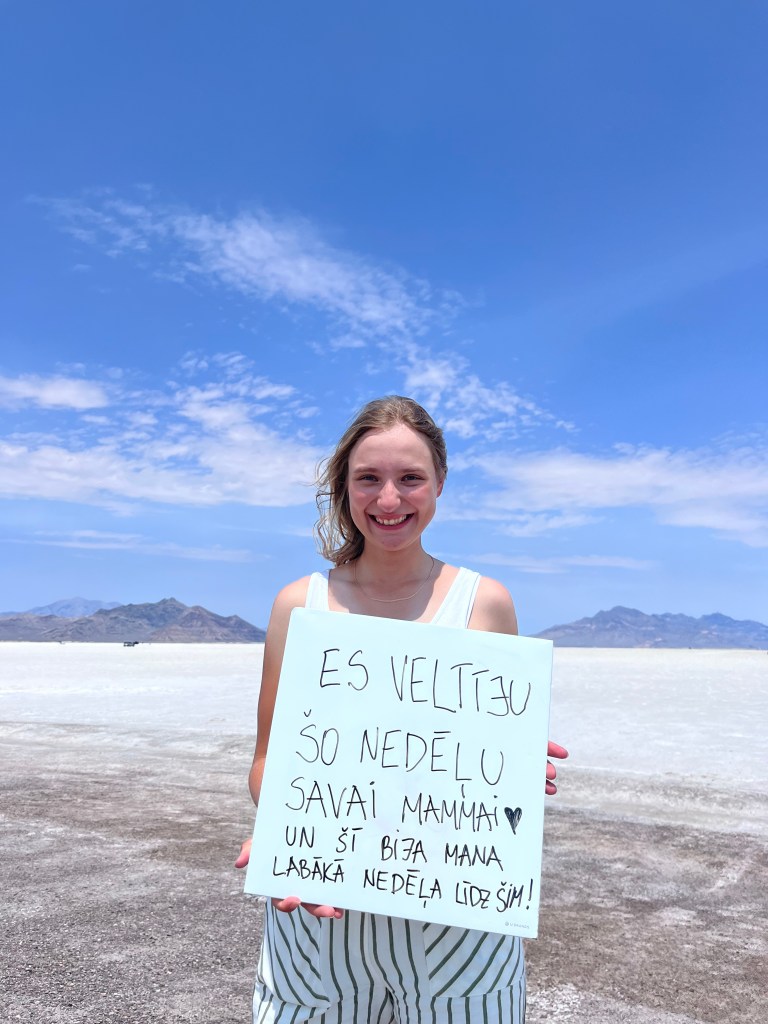 ES VELTĪJU
ŠO NEDĒĻU
SAVAI MAMMAI ♥
UN ŠĪ BIJA MANA
LABĀKĀ NEDĒĻA LĪDZ ŠIM!